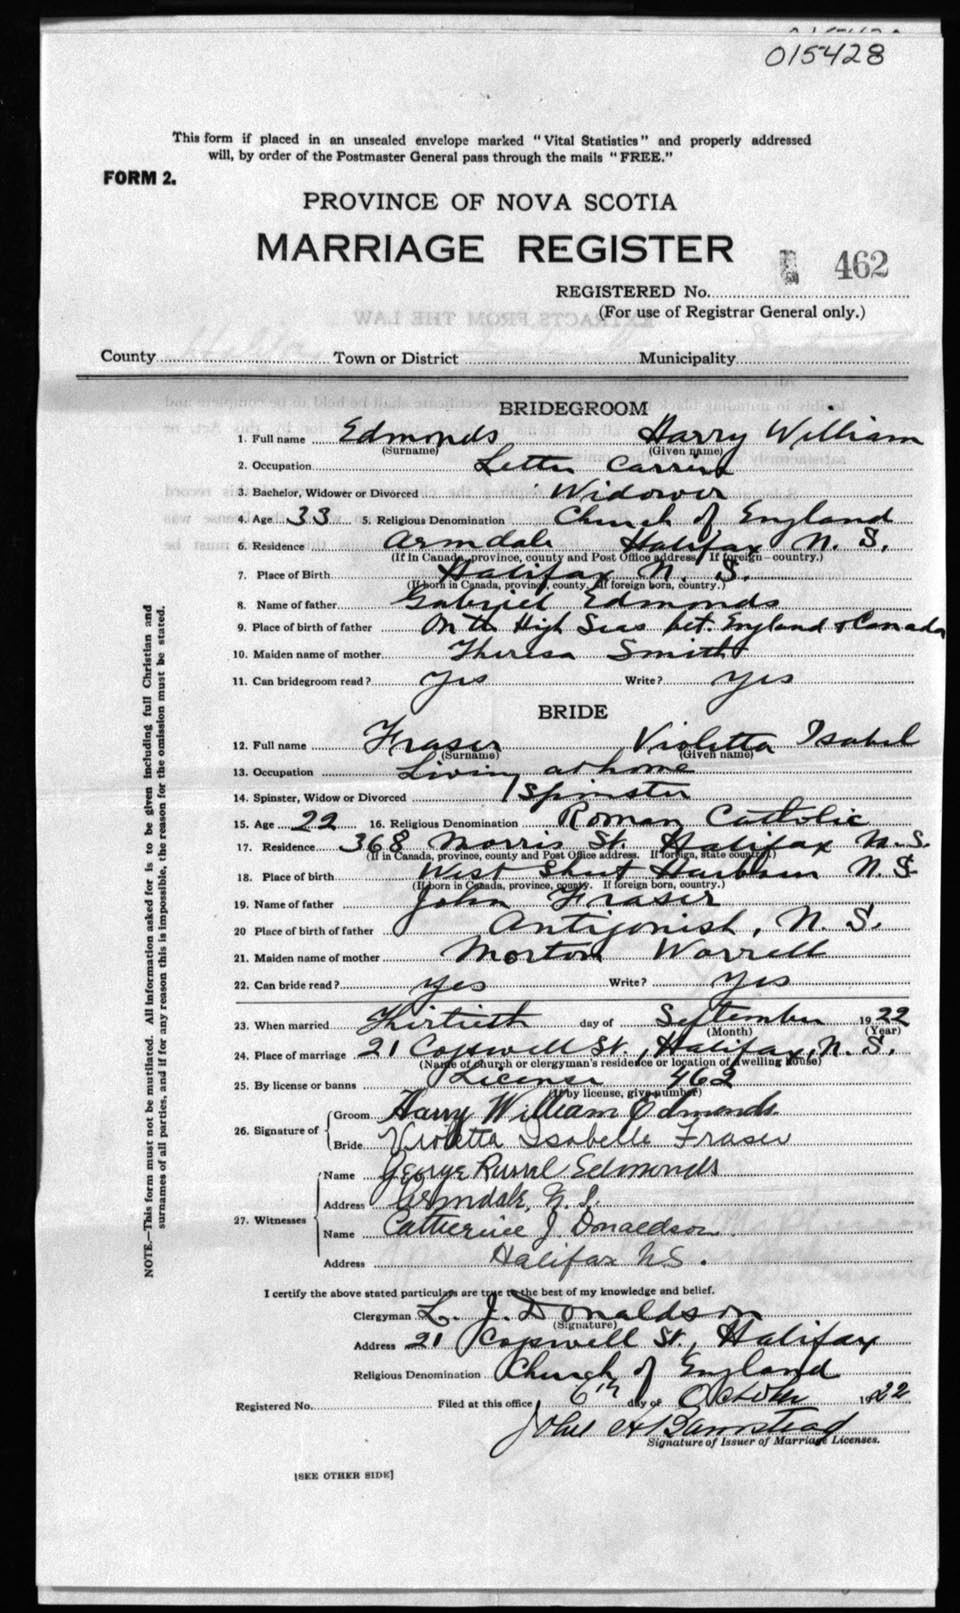 015428
This form if placed in an unsealed envelope marked "Vital Statistics" and properly addressed
will, by order of the Postmaster General pass through the mails "FREE."
FORM 2.
PROVINCE OF NOVA SCOTIA
MARRIAGE REGISTER
462
REGISTERED No.
(For use of Registrar General only.)
County Town or District Municipality
BRIDEGROOM
1. Full name Edmonds Harry William
(Surname) (Given name)
2. Occupation Letter Carrier
3. Bachelor, Widower or Divorced Widower
4. Age 33 5. Religious Denomination Church of England
6. Residence Armdale Halifax N. S.
(If in Canada, province, county and Post Office address. If foreign—country.)
7. Place of Birth Halifax N. S.
(If born in Canada, province, county. If foreign born, country.)
8. Name of father Gabriel Edmonds
9. Place of birth of father On the High Seas bet. England & Canada
10. Maiden name of mother Theresa Smith
11. Can bridegroom read? Yes Write? Yes
BRIDE
12. Full name Fraser Violetta Isabel
(Surname) (Given name)
13. Occupation Living at home
14. Spinster, Widow or Divorced Spinster
15. Age 22 16. Religious Denomination Roman Catholic
17. Residence 368 Morris St. Halifax N. S.
(If in Canada, province, county and Post Office address. If foreign, state country.)
18. Place of birth West Sheet Harbour N S.
(If born in Canada, province, county. If foreign born, country.)
19. Name of father John Fraser
20 Place of birth of father Antigonish, N. S.
21. Maiden name of mother Morton Worrell
22. Can bride read? Yes Write? Yes
23. When married Thirtieth day of September 1922
(Month) (Year)
24. Place of marriage 21 Cogswell St., Halifax, N. S.
(Name of church or clergyman's residence or location of dwelling house)
25. By license or banns License 462
(If by license, give number)
26. Signature of Groom Harry William Edmonds
Bride Violetta Isabelle Fraser
27. Witnesses Name George Russel Edmonds
Address Armdale, N. S.
Name Catherine J. Donaldson
Address Halifax N.S.
I certify the above stated particulars are true to the best of my knowledge and belief.
Clergyman L. J. Donaldson
(Signature)
Address 21 Cogswell St., Halifax
Religious Denomination Church of England
Registered No. Filed at this office 6th day of October 1922
Signature of Issuer of Marriage Licenses.
[SEE OTHER SIDE]
NOTE.—This form must not be mutilated. All information asked for is to be given including full Christian and
surnames of all parties, and if for any reason this is impossible, the reason for the omission must be stated.